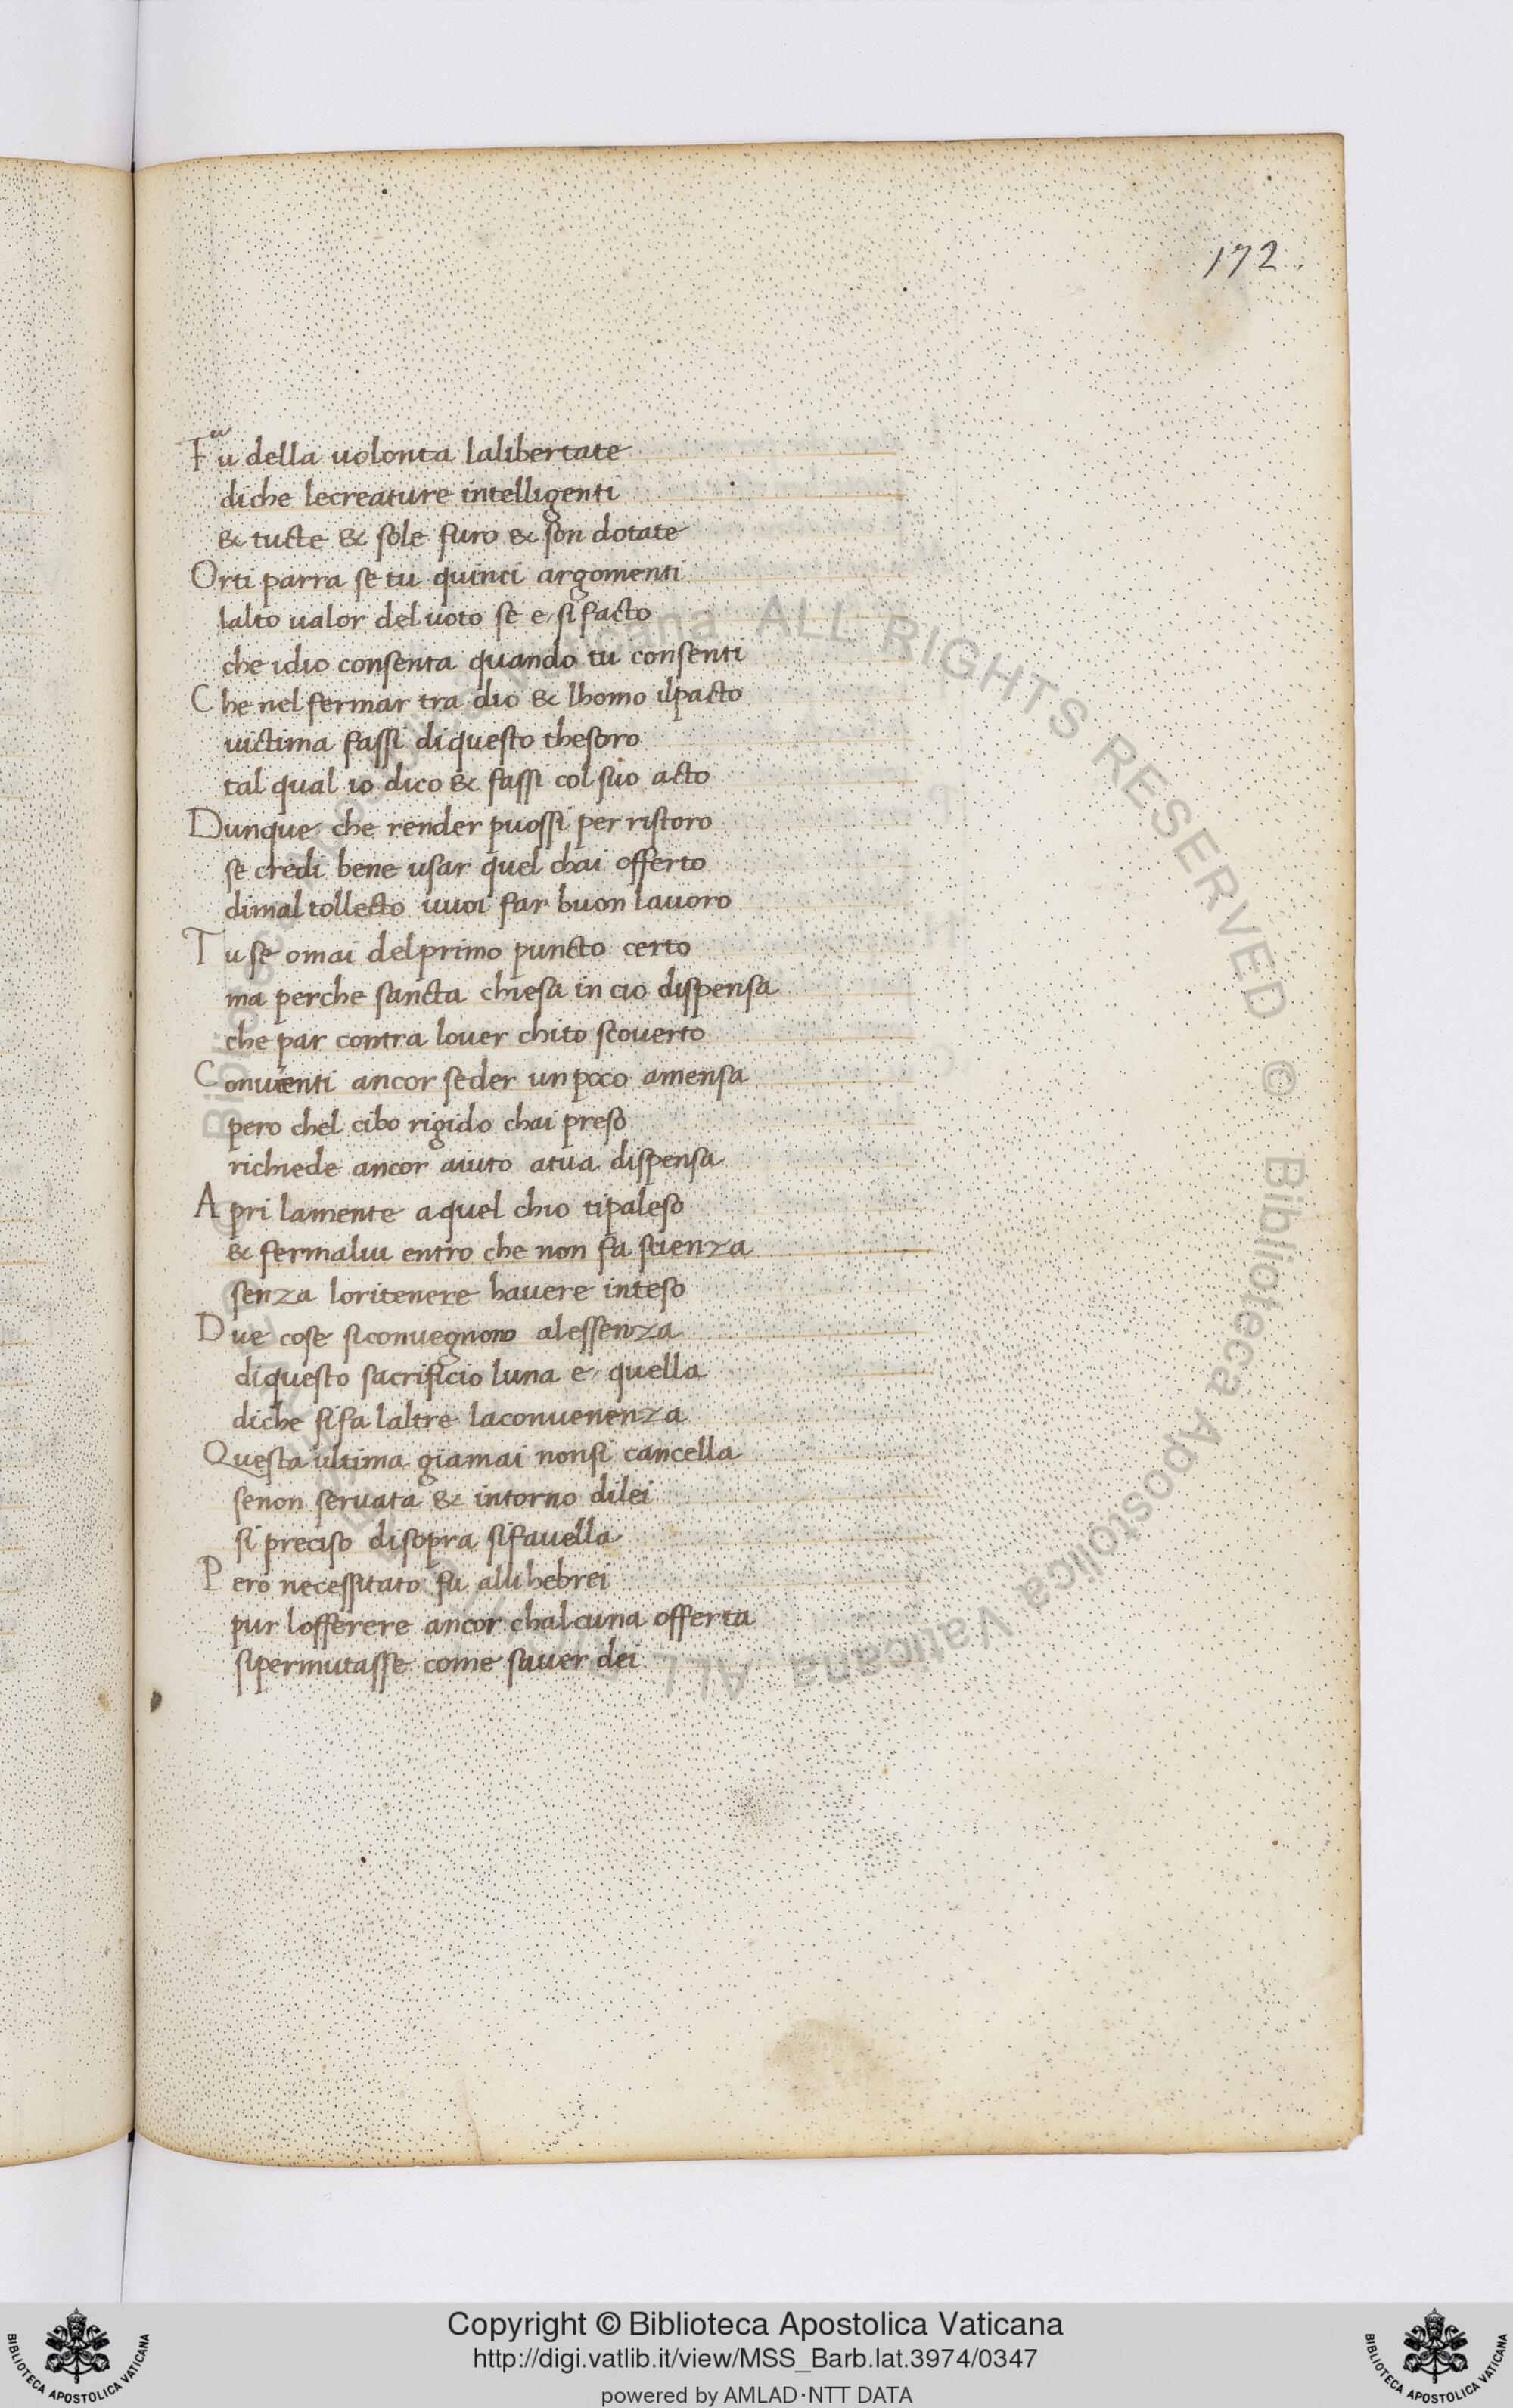 172.
Fu della uolonta lalibertate
diche lecreature intelligenti
& tucte & sole furo & son dotate
Orti parra se tu quinci argomenti
lalto ualor del uoto se e si facto
che idio consenta quando tu consenti
Che nel fermar tra dio & lhomo ilpacto
uictima fassi diquesto thesoro
tal qual io dico & fassi col suo acto
Dunque che render puossi per ristoro
se credi bene usar quel chai offerto
dimal tollecto uuoi far buon lauoro
Tu se omai delprimo puncto certo
ma perche sancta chiesa in cio dispensa
che par contra louer chito scouerto
Conuienti ancor seder un poco amensa
pero chel cibo rigido chai preso
richiede ancor aiuto atua dispensa
Apri lamente aquel chio tipaleso
& fermaliui entro che non fa scienza
senza loritenere hauere inteso
Due cose siconuegnono alessenza
diquesto sacrificio luna e quella
diche sifa laltre laconuenenza
Questa ultima giamai nonsi cancella
senon seruata & intorno dilei
si preciso disopra sifauella
Pero necessitato fu alli hebrei
pur lofferere ancor chalcuna offerta
sipermutasse come sauer dei
Biblioteca Apostolica Vaticana ALL RIGHTS RESERVED © Biblioteca Apostolica Vaticana ALL RIGHTS RESERVED ©
Copyright © Biblioteca Apostolica Vaticana
http://digi.vatlib.it/view/MSS_Barb.lat.3974/0347
powered by AMLAD·NTT DATA
BIBLIOTECA APOSTOLICA VATICANA
BIBLIOTECA APOSTOLICA VATICANA